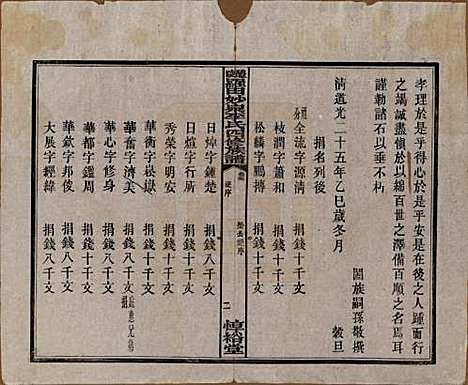 孝理於是乎得心於是乎安是在後之人踵而行
之竭誠盡愼於以綿百世之澤備百順之名焉耳
謹勒諸石以垂不朽
闔族嗣孫敬撰
清道光二十五年乙巳歲冬月 穀旦
捐名列後
全流字源清 捐錢十千文
枝潤字蕭和 捐錢十千文
松麟字鵬摶 捐錢十千文
李氏四修族譜
二 惇裕堂
日煒字鍾楚 捐錢八千文
日煊字行所 捐錢八千文
秀榮字明安 捐錢八千文
華衡字崧嶽 捐錢八千文
華奮字濟美 捐錢八千文
華都字鑑周 捐錢八千文
華心字修身 捐錢八千文
華欽字邦俊 捐錢八千文
大展字經緯 捐錢八千文